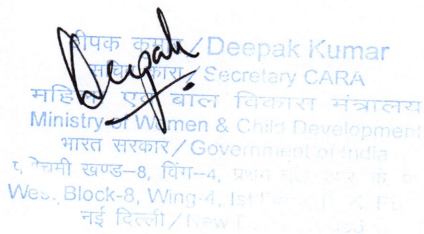 दीपक कुमार / Deepak Kumar
सचिव कारा / Secretary CARA
महिला एवं बाल विकास मंत्रालय
Ministry of Women & Child Development
भारत सरकार / Government of India
खण्ड–8, विंग–4,
West Block-8, Wing-4, Ist
नई दिल्ली / New
Deepak